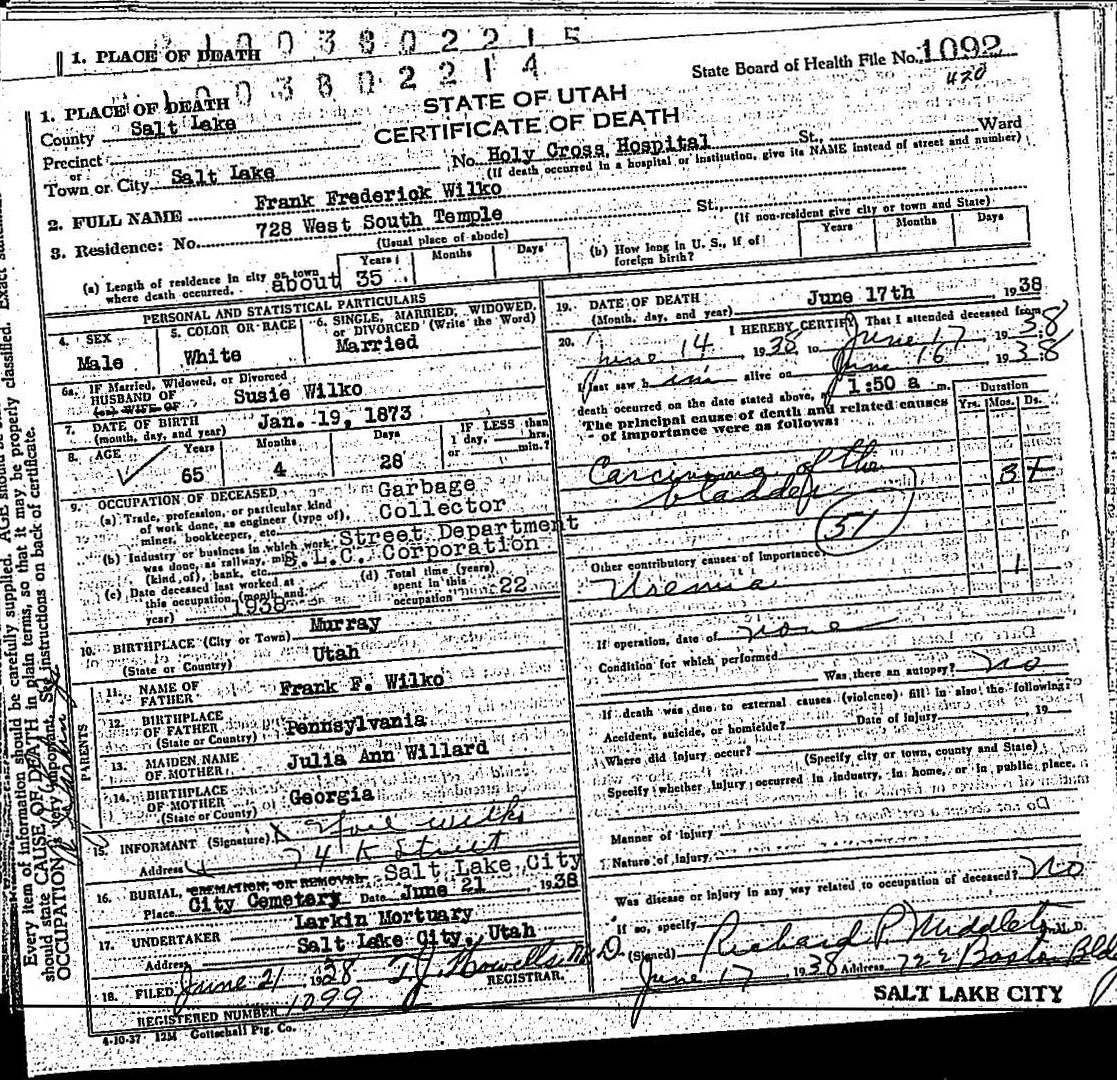 1. PLACE OF DEATH
2 1 0 0 3 8 0 2 2 1 5
1 0 0 3 8 0 2 2 1 4
State Board of Health File No. 1092
420
STATE OF UTAH
CERTIFICATE OF DEATH
1. PLACE OF DEATH
County Salt Lake
Precinct
or
Town or City Salt Lake No. Holy Cross Hospital St. Ward
(If death occurred in a hospital or institution, give its NAME instead of street and number)
2. FULL NAME Frank Frederick Wilko
3. Residence: No. 728 West South Temple St.
(Usual place of abode) (If non-resident give city or town and State)
(a) Length of residence in city or town where death occurred. Years Months Days
about 35
(b) How long in U. S., if of foreign birth? Years Months Days
PERSONAL AND STATISTICAL PARTICULARS
4. SEX
Male
5. COLOR OR RACE
White
6. SINGLE, MARRIED, WIDOWED, or DIVORCED (Write the Word)
Married
6a. IF Married, Widowed, or Divorced
HUSBAND OF
(or) WIFE OF Susie Wilko
7. DATE OF BIRTH
(month, day, and year) Jan. 19, 1873
8. AGE Years Months Days IF LESS than
1 day, hrs.
or min.?
65 4 28
9. OCCUPATION OF DECEASED
(a) Trade, profession, or particular kind of work done, as engineer (type of), miner, bookkeeper, etc. Garbage Collector
(b) Industry or business in which work was done, as railway, mine (kind of), bank, etc. Street Department
S.L.C. Corporation
(c) Date deceased last worked at this occupation (month and year) 1938
(d) Total time (years) spent in this occupation 22
10. BIRTHPLACE (City or Town) Murray
(State or Country) Utah
PARENTS
11. NAME OF FATHER Frank F. Wilko
12. BIRTHPLACE OF FATHER
(State or Country) Pennsylvania
13. MAIDEN NAME OF MOTHER Julia Ann Willard
14. BIRTHPLACE OF MOTHER
(State or Country) Georgia
15. INFORMANT (Signature) Wilko
Address 74 K Street
Salt Lake City
16. BURIAL, CREMATION, OR REMOVAL
Place City Cemetery Date June 21 1938
17. UNDERTAKER Larkin Mortuary
Address Salt Lake City, Utah
18. FILED June 21 1938 T.J. Howells M.D.
REGISTRAR.
REGISTERED NUMBER 1099
4-10-37 12M Gottschall Ptg. Co.
19. DATE OF DEATH
(Month, day, and year) June 17th 1938
20. I HEREBY CERTIFY, That I attended deceased from
June 14, 1938 to June 17 1938
I last saw him alive on June 16 1938
death occurred on the date stated above, 1:50 a m.
The principal cause of death and related causes of importance were as follows:
Duration
Yrs. Mos. Ds.
Carcinoma of the 3 +
bladder
51
Other contributory causes of importance:
Uremia 1
If operation, date of none
Condition for which performed
Was there an autopsy? No
If death was due to external causes (violence) fill in also the following:
Accident, suicide, or homicide? Date of injury 19
Where did injury occur?
(Specify city or town, county and State)
Specify whether injury occurred in industry, in home, or in public place.
Manner of injury
Nature of injury
Was disease or injury in any way related to occupation of deceased? No
If so, specify
(Signed) Richard P. Middleton M.D.
June 17 1938 Address 722 Boston Bldg
SALT LAKE CITY
Every item of information should be carefully supplied. AGE should be
should state CAUSE OF DEATH in plain terms, so that it may be properly classified. Exact
OCCUPATION is very important. See instructions on back of certificate.